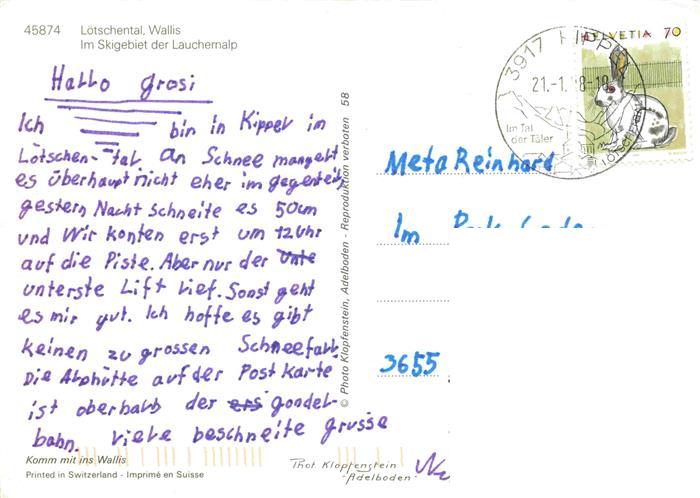 45874 Lötschental, Wallis
Im Skigebiet der Lauchernalp
Hallo grosi
Ich bin in Kippel im
Lötschen-tal. An Schnee mangelt
es überhaupt nicht eher im gegenteil,
gestern Nacht schneite es 50cm
und Wir konten erst um 12 Uhr
auf die Piste. Aber nur der Unte
unterste Lift lief. Sonst geht
es mir gut. Ich hoffe es gibt
keinen zu grossen Schneefall.
Die Alphütte auf der Postkarte
ist oberhalb der ers gondel-
bahn. viele beschneite grüsse
Komm mit ins Wallis
Printed in Switzerland - Imprimé en Suisse
© Photo Klopfenstein, Adelboden - Reproduktion verboten 58
Phot. Klopfenstein
-Adelboden-
3917 KIPP
21.-1.
Im Tal
der Täler
LÖTSCHENTAL
HELVETIA 70
Meta Reinhard
Im
3655